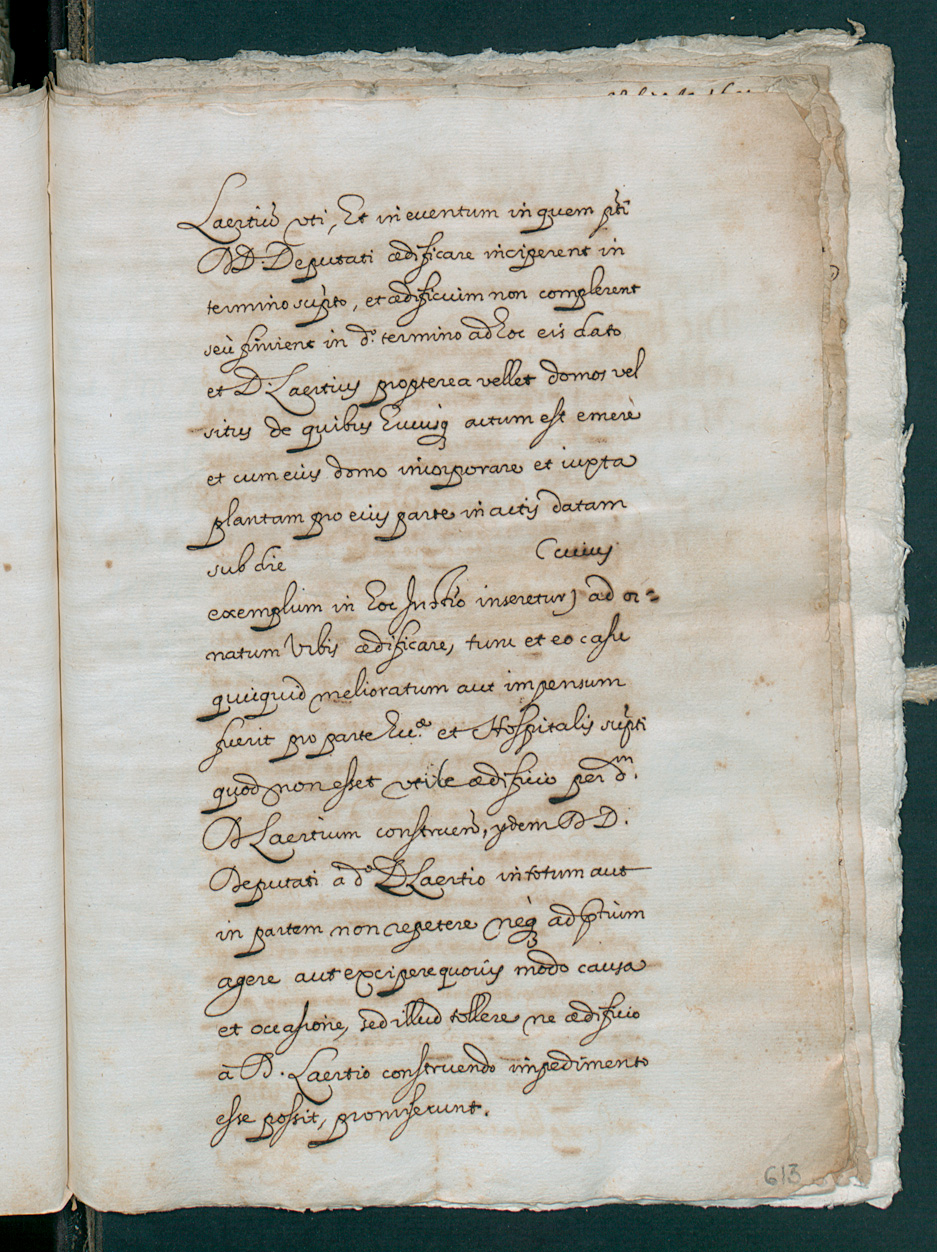 Laertiũ uti, Et in eventum in quem pñti
DD. Deputati ædificare inciperent in
termino supto, et ædificium non complerent
seù finirent in d.º termino ad hoc eis dato
et D. Laertius propterea vellet domos vel
situs de quibus huiusq actum est emere
et cum eius domo incorporare et iuxta
plantam pro eius parte in actis datam
sub die (cuius
exemplum in hoc Insto inseretur) ad or=
natum Urbis ædificare, tunc et eo casu
quicquid melioratum aut impensum
fuerit pro parte Ecc.æ et Hospitalis supti
quod non esset utile ædificio per d.m
D Laertium construen̄, ydem DD.
Deputati a d.º D. Laertio in totum aut
in partem non repetere neq ad ptium
agere aut excipere quovis modo causa
et occasione, sed illud tollere ne ædificio
à D. Laertio construendo impedimento
esse possit, promiserunt.
613